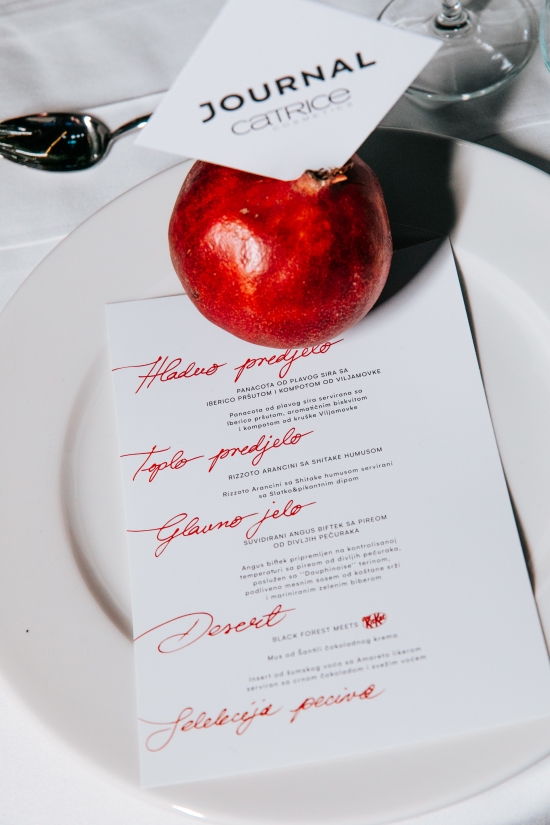 JOURNAL
CATRICE
COSMETICS
Hladno predjelo
PANACOTA OD PLAVOG SIRA SA
IBERICO PRŠUTOM I KOMPOTOM OD VILJAMOVKE
Panacota od plavog sira servirana sa
Iberico pršutom, aromatičnim biskvitom
i kompotom od kruške Viljamovke
Toplo predjelo
RIZZOTO ARANCINI SA SHITAKE HUMUSOM
Rizzoto Arancini sa Shitake humusom servirani
sa Slatko&pikantnim dipom
Glavno jelo
SUVIDIRANI ANGUS BIFTEK SA PIREOM
OD DIVLJIH PEČURAKA
Angus biftek pripremljen na kontrolisanoj
temperaturi sa pireom od divljih pečuraka,
poslužen sa "Dauphinoise" terinom,
podliveno mesnim sosem od koštane srži
i mariniranim zelenim biberom
Desert
BLACK FOREST MEETS
Mus od Šantili čokoladnog krema
Insert od šumskog voća sa Amareto likerom
serviran sa crnom čokoladom i svežim voćem
Selekcija peciva